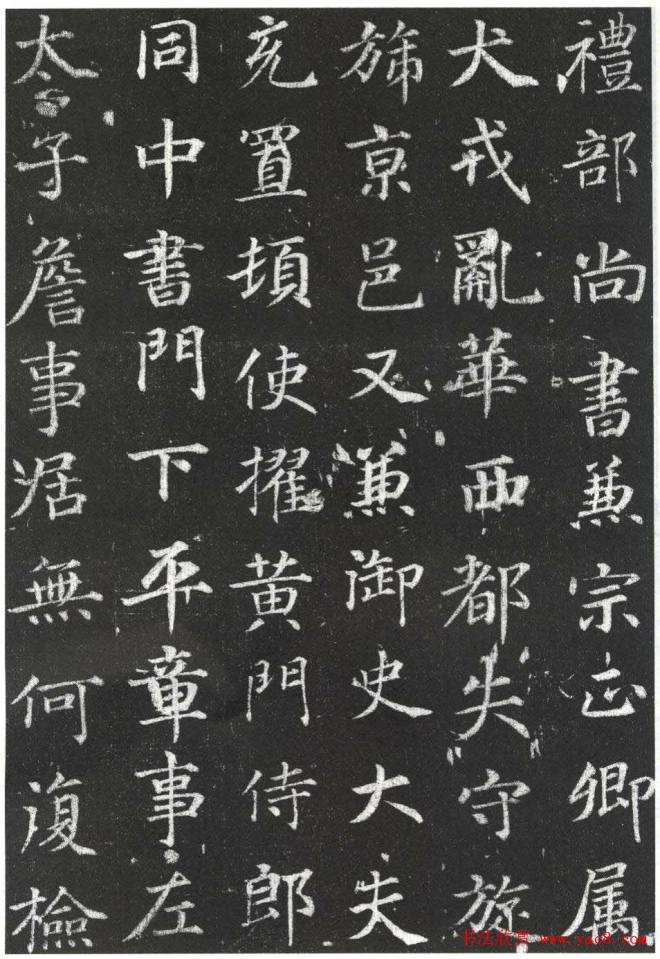 禮部尚書兼宗正卿属
犬戎亂華西都失守旋
旆亰邑又兼御史大夫
充置頓使擢黄門侍郎
同中書門下平章事左
太子詹事居無何復檢
书法欣赏 www.yac8.com